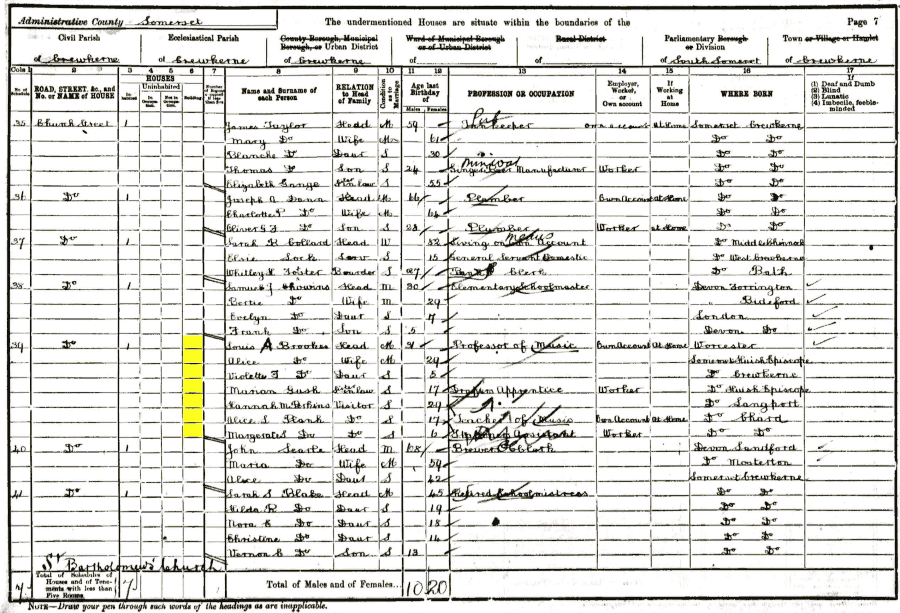 Administrative County Somerset The undermentioned Houses are situate within the boundaries of the Page 7
Civil Parish Ecclesiastical Parish County Borough, Municipal Borough, or Urban District Ward of Municipal Borough or of Urban District Rural District Parliamentary Borough or Division Town or Village or Hamlet
of Crewkerne of Crewkerne of Crewkerne of of of South Somerset of Crewkerne
Cols 1 2 3 4 5 6 7 8 9 10 11 12 13 14 15 16 17
No. of Schedule ROAD, STREET, &c., and No. or NAME of HOUSE HOUSES Inhabited Uninhabited In Occupation Not in Occupation Building Name and Surname of each Person RELATION to Head of Family Condition as to Marriage Age last Birthday of Males Females PROFESSION OR OCCUPATION Employer, Worker, or Own account If Working at Home WHERE BORN If (1) Deaf and Dumb (2) Blind (3) Lunatic (4) Imbecile, feeble-minded
35 Church Street 1 James Taylor Head M 59 Pub Innkeeper own account At Home Somerset Crewkerne
Mary Do Wife M 61 Do Do
Blanche Do Daur S 30 Do Do
Thomas Do Son S 24 Mineral Ginger Beer Manufacturer Worker Do Do
Elizabeth S 55 Do Do
36 Do 1 Joseph Head M 66 Plumber Own Account at Home Do Do
Charlotte Do Wife M 64 Do Do
Oliver Do Son S 28 Plumber Worker at Home Do Do
37 Do 1 Sarah Collard Head W 52 Living on Own Account Means Do
Elsie Lock Serv S 15 General Servant Domestic Do West Crewkerne
Foster Boarder S 27 Bank Clerk Do Bath
38 Do 1 Samuel J Head M 30 Elementary Schoolmaster Devon Torrington
Bertie Do Wife M 29 " Bideford
Evelyn Do Daur S 7 London
Frank Do Son S 5 Devon Do
39 Do 1 Louis A Brookes Head M 31 Professor of Music Own Account At Home Worcester
Alice Do Wife M 29 Somerset Huish Episcopi
Violetta Do Daur S 5 Do Crewkerne
Marian Gush S 17 Apprentice Worker Do Huish Episcopi
Hannah M Perkins Visitor S 29 Do Langport
Alice S Hank Do S 17 Teacher of Music Own Account at Home Do Chard
Do Do S 6 Assistant Worker Do Do
40 Do 1 John Searle Head M 68 Brewer's Clerk Devon Sandford
Maria Do Wife M 59 Do Mosterton
Alice Do Daur S 42 Somerset Crewkerne
41 Do 1 Sarah S Blake Head M 45 Retired Schoolmistress Do Do
Hilda R Do Daur S 19 Do Do
Nora K Do Daur S 18 Do Do
Christine Do Daur S 14 Do Do
Vernon Do Son S 13 Do Do
St Bartholomew's Church
7 Total of Schedules of Houses and of Tenements with less than Five Rooms 7 Total of Males and of Females... 10 20
NOTE—Draw your pen through such words of the headings as are inapplicable.